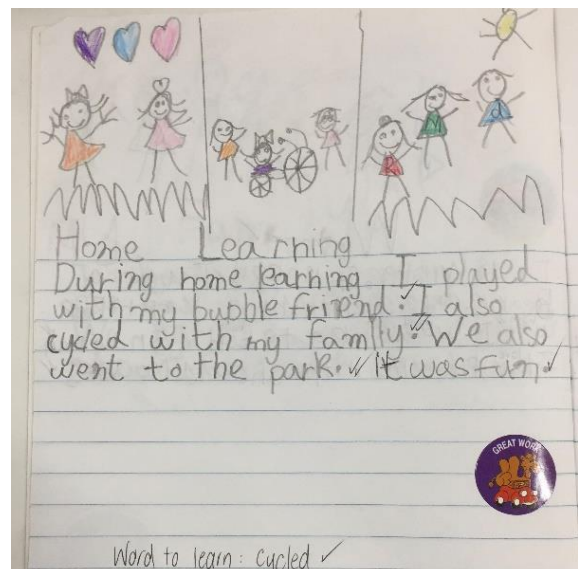 Home Learning
During home learning I played
with my bubble friend. I also
cycled with my family. We also
went to the park. It was fun.
GREAT WORK
Word to learn: cycled